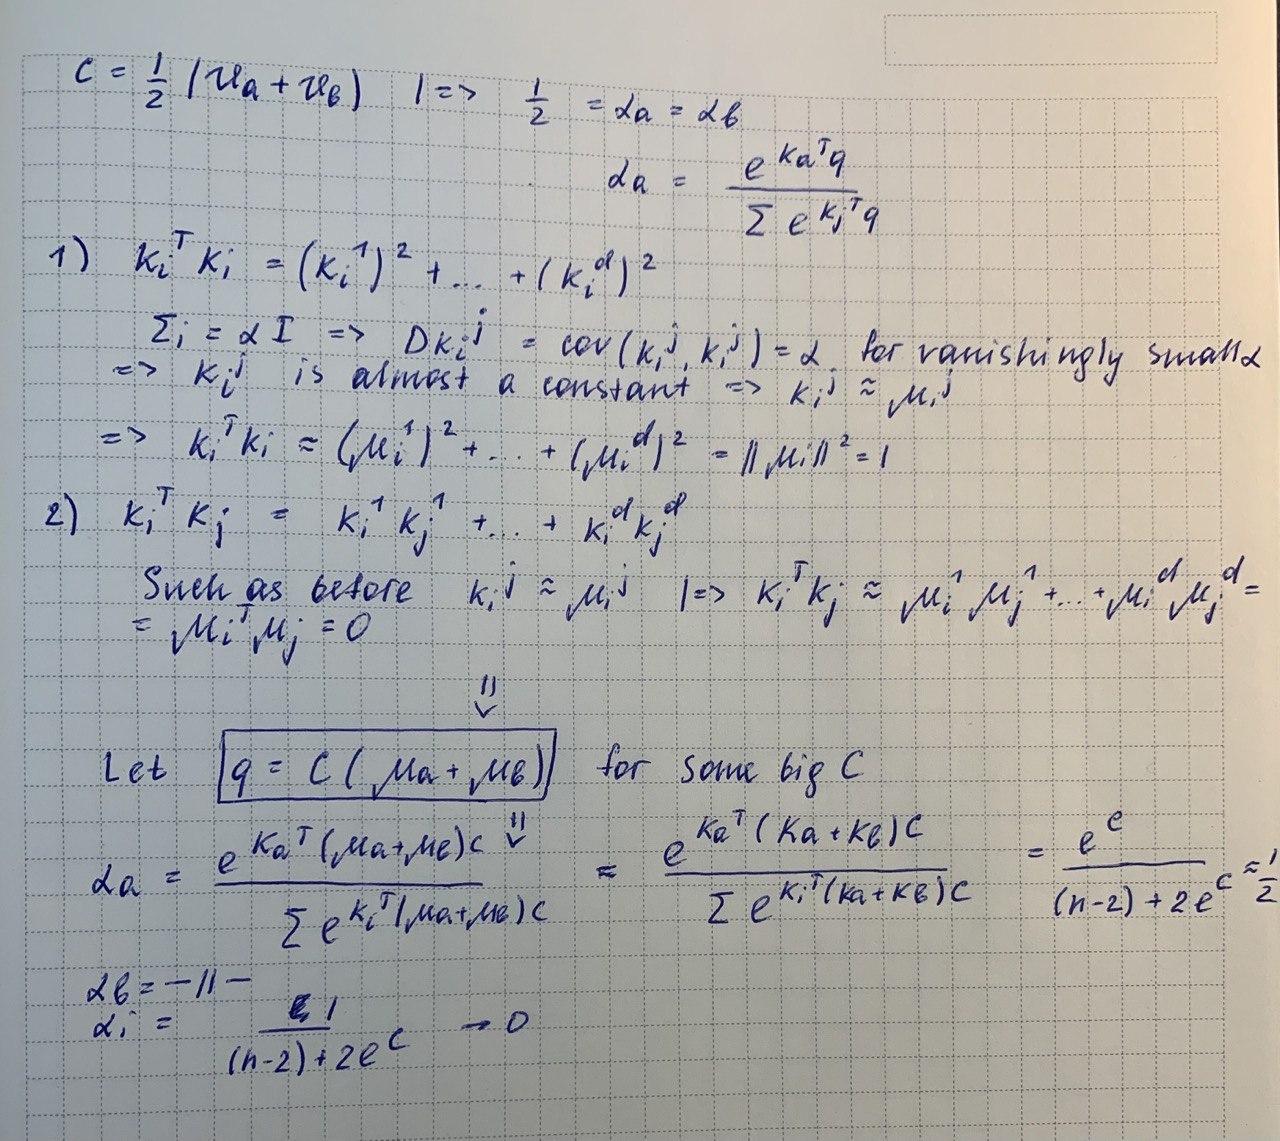 c = 1/2 (va + vb) |=> 1/2 = αa = αb
αa = e^(ka^T q) / Σ e^(kj^T q)
1) ki^T ki = (ki^1)^2 + ... + (ki^d)^2
Σi = αI => Dki^j = cov(ki^j, ki^j) = α for vanishingly small α
=> ki^j is almost a constant => ki^j ≈ μi^j
=> ki^T ki ≈ (μi^1)^2 + ... + (μi^d)^2 = ||μi||^2 = 1
2) ki^T kj = ki^1 kj^1 + ... + ki^d kj^d
Such as before ki^j ≈ μi^j |=> ki^T kj ≈ μi^1 μj^1 + ... + μi^d μj^d =
= μi^T μj = 0
⇓
Let q = C (μa + μb) for some big C
⇓
αa = e^(ka^T (μa+μb)C) / Σ e^(ki^T (μa+μb)C) ≈ e^(ka^T (ka+kb)C) / Σ e^(ki^T (ka+kb)C) = e^C / ((n-2) + 2e^C) ≈ 1/2
αb = -||-
αi = 1 / ((n-2) + 2e^C) → 0